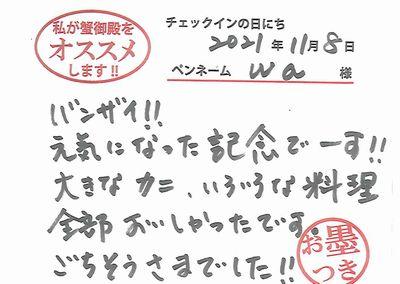 私が蟹御殿を
オススメ
します!!
チェックインの日にち
2021年11月8日
ペンネーム wa 様
バンザイ!!
元気になった記念でーす!!
大きなカニ、いろいろな料理
全部おいしかったです。
ごちそうさまでした!!
お墨
つき